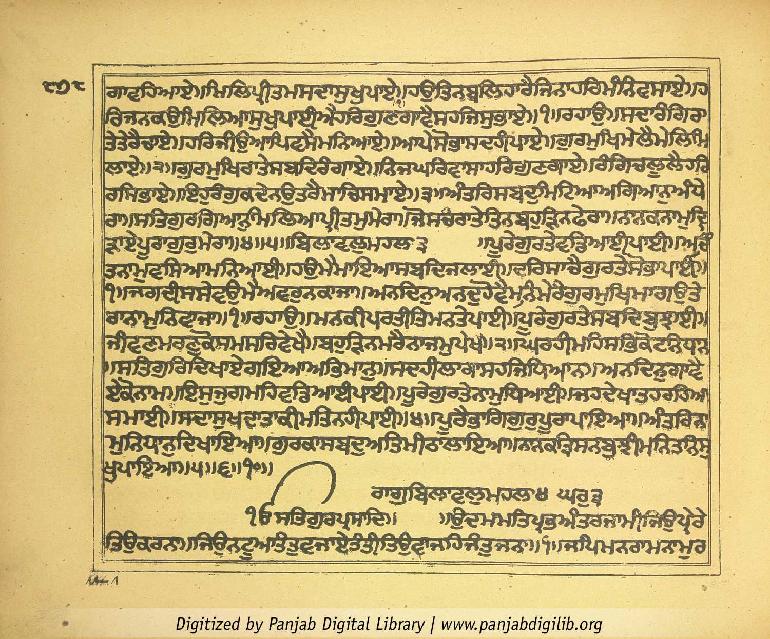 ੮੭੮
ਗਾਵਹਿਆਏ॥ਮਿਲਿਪ੍ਰੀਤਮਸਦਾਸੁਖੁਪਾਏ॥ਹਉਤਿਨਬਲਿਹਾਰੈਜਿਨਾਹਰਿਮੰਨਿਵਸਾਏ॥ਹ
ਰਿਜਨਕਉਮਿਲਿਆਸੁਖੁਪਾਈਐਹਰਿਗੁਣਗਾਵੈਸਹਜਿਸੁਭਾਏ॥੧॥ਰਹਾਉ॥ਸਦਾਰੰਗਿਰਾ
ਤੇਤੇਰੈਚਾਏ॥ਹਰਿਜੀਉਆਪਿਵਸੈਮਨਿਆਏ॥ਆਪੇਸੋਭਾਸਦਹੀਪਾਏ॥ਗੁਰਮੁਖਿਮੇਲੈਮੇਲਿਮਿ
ਲਾਏ॥੨॥ਗੁਰਮੁਖਿਰਾਤੇਸਬਦਿਰੰਗਾਏ॥ਨਿਜਘਰਿਵਾਸਾਹਰਿਗੁਣਗਾਏ॥ਰੰਗਿਚਲੂਲੈਹਰਿ
ਰਸਿਭਾਏ॥ਇਹੁਰੰਗੁਕਦੇਨਉਤਰੈਸਾਚਿਸਮਾਏ॥੩॥ਅੰਤਰਿਸਬਦੁਮਿਟਿਆਅਗਿਆਨੁਅੰਧੇ
ਰਾ॥ਸਤਿਗੁਰਗਿਆਨੁਮਿਲਿਆਪ੍ਰੀਤਮੁਮੇਰਾ॥ਜੋਸਚਿਰਾਤੇਤਿਨਬਹੁੜਿਨਫੇਰਾ॥ਨਾਨਕਨਾਮੁਦ੍ਰਿ
ੜਾਏਪੂਰਾਗੁਰੁਮੇਰਾ॥੪॥੫॥ਬਿਲਾਵਲੁਮਹਲਾ੩ ॥ਪੂਰੇਗੁਰਤੇਵਡਿਆਈਪਾਈ॥ਅਚਿੰ
ਤਨਾਮੁਵਸਿਆਮਨਿਆਈ॥ਹਉਮੈਮਾਇਆਸਬਦਿਜਲਾਈ॥ਦਰਿਸਾਚੈਗੁਰਤੇਸੋਭਾਪਾਈ॥
੧॥ਜਗਦੀਸਸੇਵਉਮੈਅਵਰੁਨਕਾਜਾ॥ਅਨਦਿਨੁਅਨਦੁਹੋਵੈਮਨਿਮੇਰੈਗੁਰਮੁਖਿਮਾਗਉਤੇ
ਰਾਨਾਮੁਨਿਵਾਜਾ॥੧॥ਰਹਾਉ॥ਮਨਕੀਪਰਤੀਤਿਮਨਤੇਪਾਈ॥ਪੂਰੇਗੁਰਤੇਸਬਦਿਬੁਝਾਈ॥
ਜੀਵਣਮਰਣੁਕੋਸਮਸਰਿਵੇਖੈ॥ਬਹੁੜਿਨਮਰੈਨਾਜਮੁਪੇਖੈ॥੨॥ਘਰਹੀਮਹਿਸਭਿਕੋਟਨਿਧਾਨ
॥ਸਤਿਗੁਰਿਦਿਖਾਏਗਇਆਅਭਿਮਾਨੁ॥ਸਦਹੀਲਾਗਾਸਹਜਿਧਿਆਨ॥ਅਨਦਿਨੁਗਾਵੈ
ਏਕੋਨਾਮ॥੩॥ਇਸੁਜੁਗਮਹਿਵਡਿਆਈਪਾਈ॥ਪੂਰੇਗੁਰਤੇਨਾਮੁਧਿਆਈ॥ਜਹਦੇਖਾਤਹਰਹਿਆ
ਸਮਾਈ॥ਸਦਾਸੁਖਦਾਤਾਕੀਮਤਿਨਹੀਪਾਈ॥੪॥ਪੂਰੈਭਾਗਿਗੁਰੁਪੂਰਾਪਾਇਆ॥ਅੰਤਰਿਨਾ
ਮੁਨਿਧਾਨੁਦਿਖਾਇਆ॥ਗੁਰਕਾਸਬਦੁਅਤਿਮੀਠਾਲਾਇਆ॥ਨਾਨਕਤ੍ਰਿਸਨਬੁਝੀਮਨਿਤਨਿਸੁ
ਖੁਪਾਇਆ॥੫॥੬॥੧੦॥
ਰਾਗੁਬਿਲਾਵਲੁਮਹਲਾ੪ ਘਰੁ੩
ੴਸਤਿਗੁਰਪ੍ਰਸਾਦਿ॥ ॥ਉਦਮਮਤਿਪ੍ਰਭਅੰਤਰਜਾਮੀਜਿਉਪ੍ਰੇਰੇ
ਤਿਉਕਰਨਾ॥ਜਿਉਨਟੂਆਤੰਤੁਵਜਾਏਤੰਤੀਤਿਉਵਾਜਹਿਜੰਤਜਨਾ॥੧॥ਜਪਿਮਨਰਾਮਨਾਮੁਰ
Digitized by Panjab Digital Library | www.panjabdigilib.org